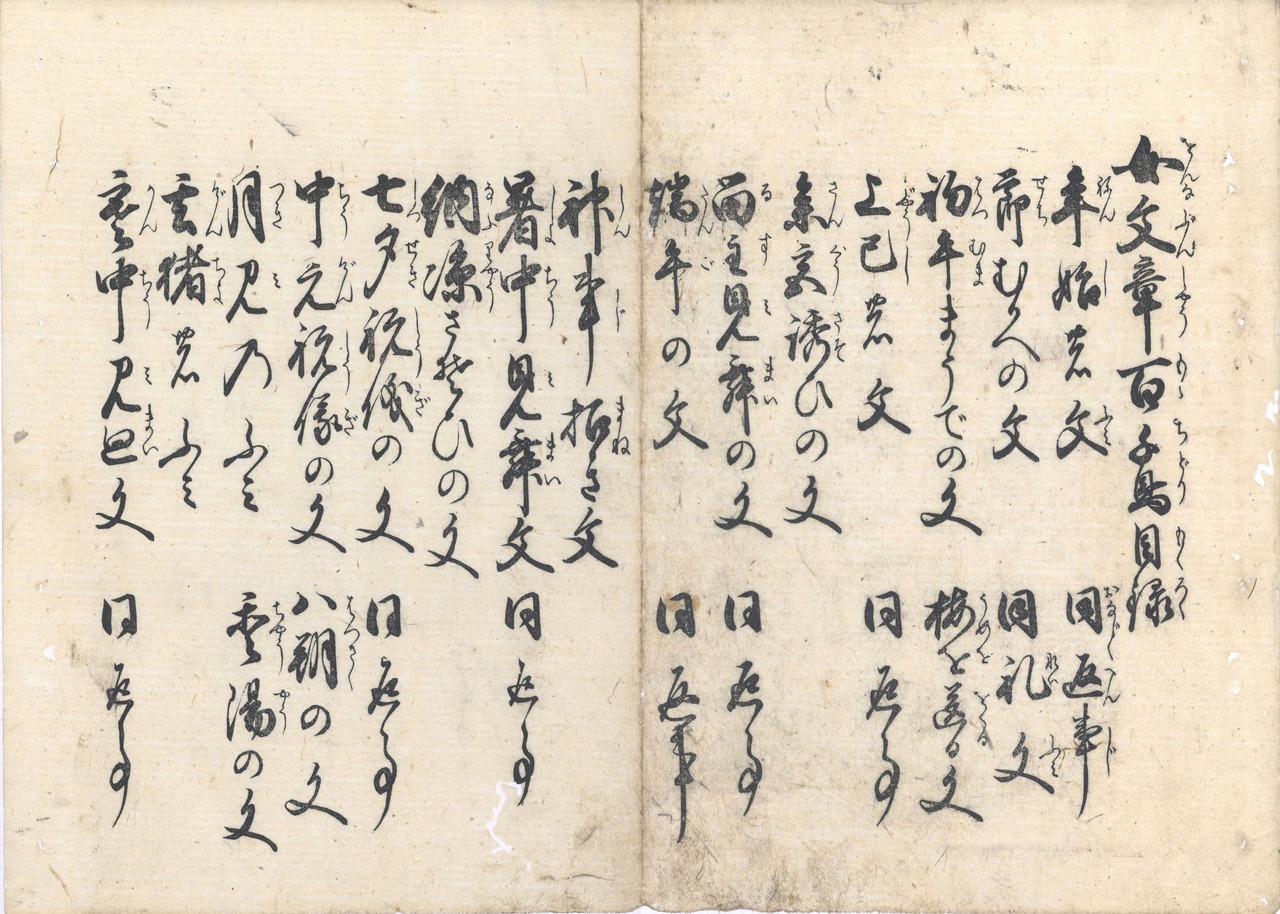 女文章百千鳥目録
年始の文 同返事
節むかへの文 同礼文
初午まうでの文 梅を送る文
上巳の文 同返事
参宮誘ひの文
留主見舞の文 同返事
端午の文 同返事
神事招き文
暑中見舞文 同返事
納涼さそひの文
七夕祝儀の文 同返事
中元祝儀の文 八朔の文
月見の ふみ 重陽の文
玄猪の ふみ
寒中見廻文 同返事